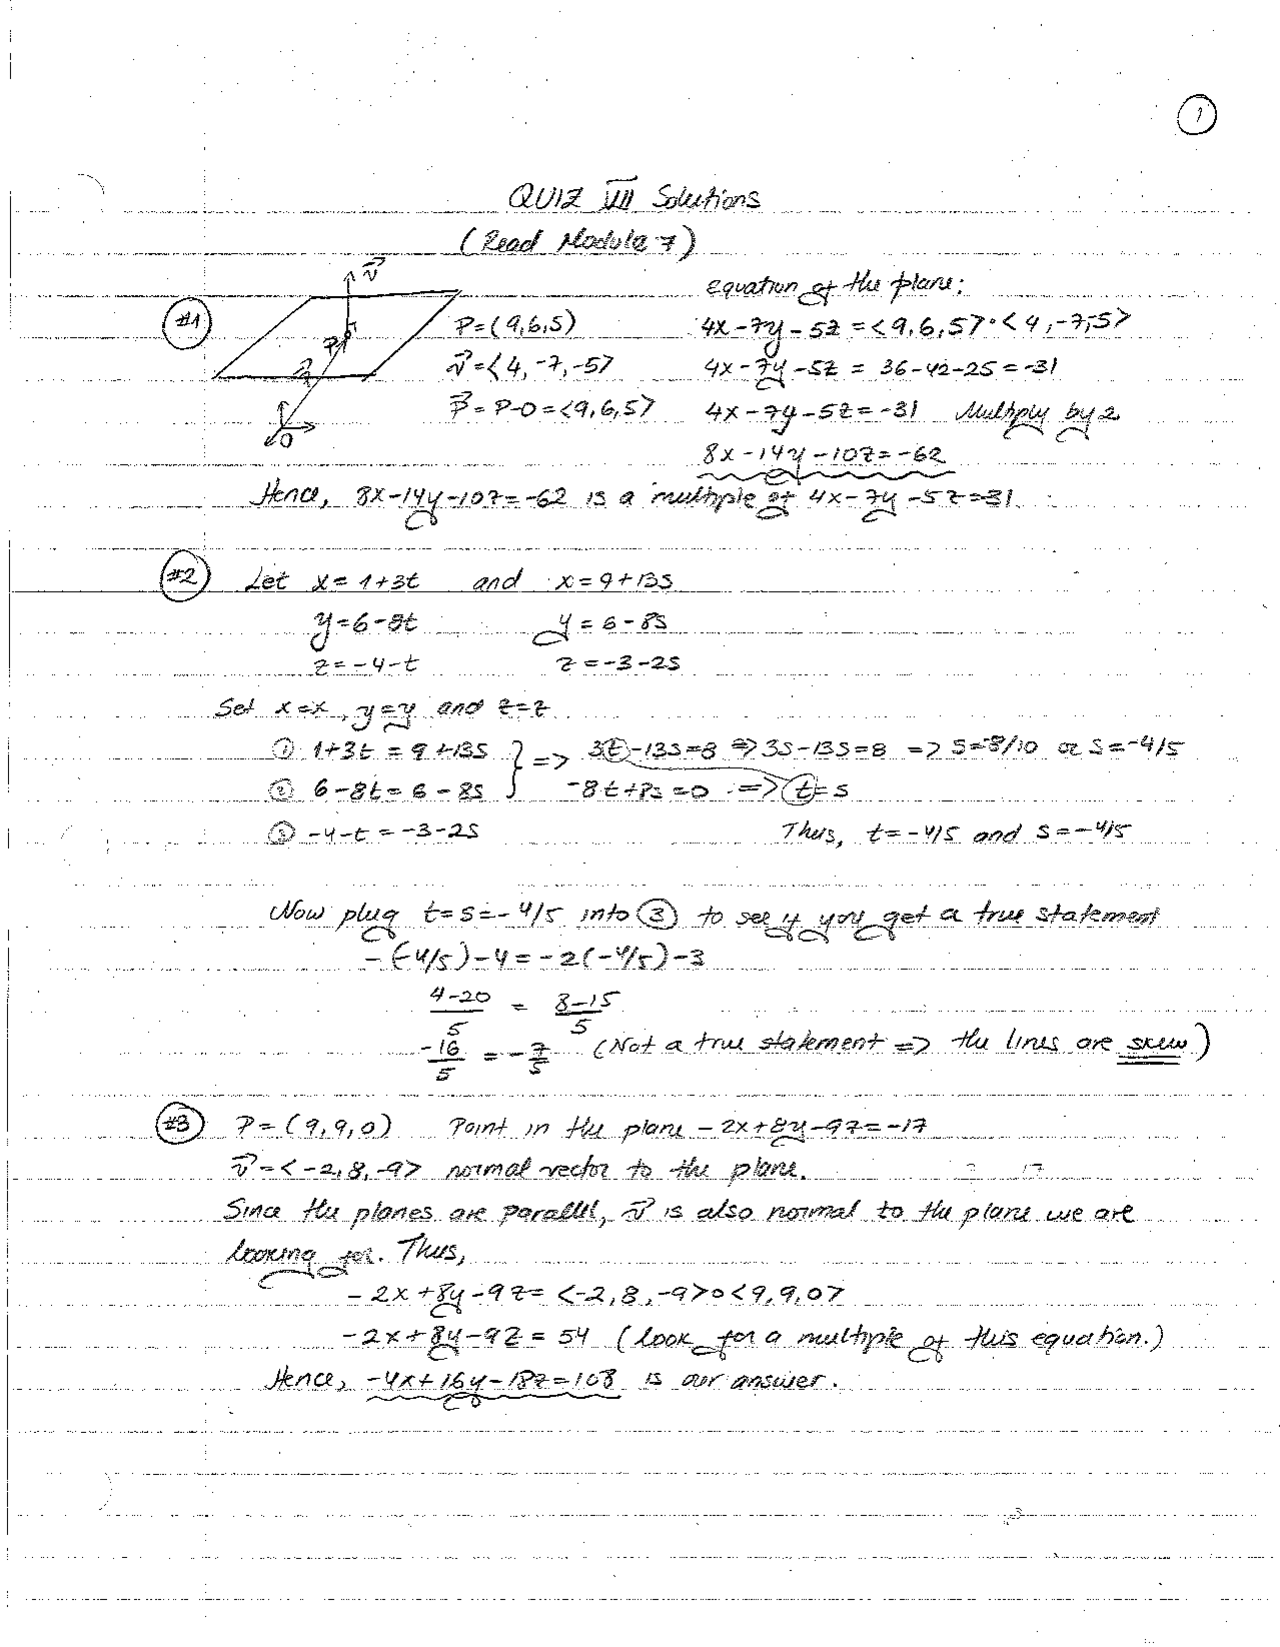 1
QUIZ VII Solutions
(Read Module 7)
#1
P=(9,6,5)
v⃗=<4,-7,-5>
p⃗=P-O=<9,6,5>
v⃗
P
p⃗
O
equation of the plane:
4x-7y-5z=<9,6,5>·<4,-7,-5>
4x-7y-5z=36-42-25=-31
4x-7y-5z=-31 Multiply by 2
8x-14y-10z=-62
Hence, 8x-14y-10z=-62 is a multiple of 4x-7y-5z=-31.
#2 Let x=1+3t and x=9+13s
y=6-8t y=6-8s
z=-4-t z=-3-2s
Set x=x, y=y and z=z
① 1+3t=9+13s } => 3t-13s=8 => 3s-13s=8 => s=-8/10 or s=-4/5
② 6-8t=6-8s -8t+8s=0 => t=s
③ -4-t=-3-2s Thus, t=-4/5 and s=-4/5
Now plug t=s=-4/5 into ③ to see if you get a true statement
-(-4/5)-4=-2(-4/5)-3
4-20/5 = 8-15/5
-16/5 = -7/5 (Not a true statement => the lines are skew)
#3 P=(9,9,0) Point in the plane -2x+8y-9z=-17
v⃗=<-2,8,-9> normal vector to the plane.
Since the planes are parallel, v⃗ is also normal to the plane we are
looking for. Thus,
-2x+8y-9z=<-2,8,-9>∘<9,9,0>
-2x+8y-9z=54 (look for a multiple of this equation.)
Hence, -4x+16y-18z=108 is our answer.